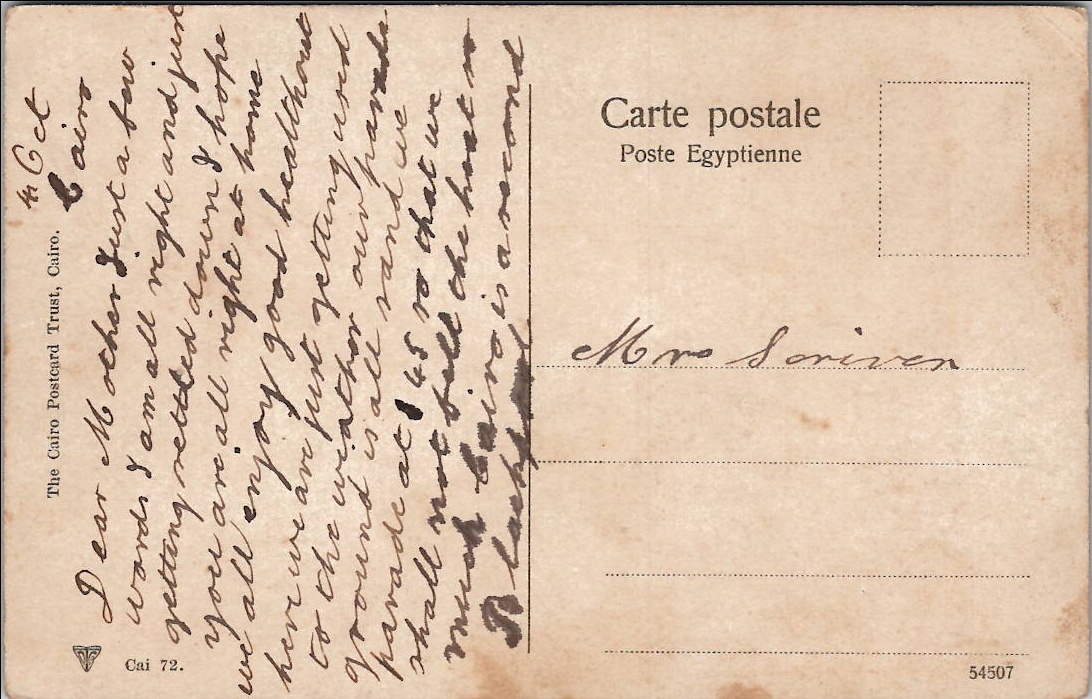 4 Oct
Cairo
Dear Mother Just a few
words I am all right and just
getting settled down I hope
you are all right at home
we all enjoy good health out
here we are just getting used
to the wiathor our parade
ground is all sand we
parade at 1 45 so that we
shall not feel the heat so
much Cairo is a second
Blackpool
The Cairo Postcard Trust, Cairo.
Cai 72.
Carte postale
Poste Egyptienne
Mrs Scriven
54507